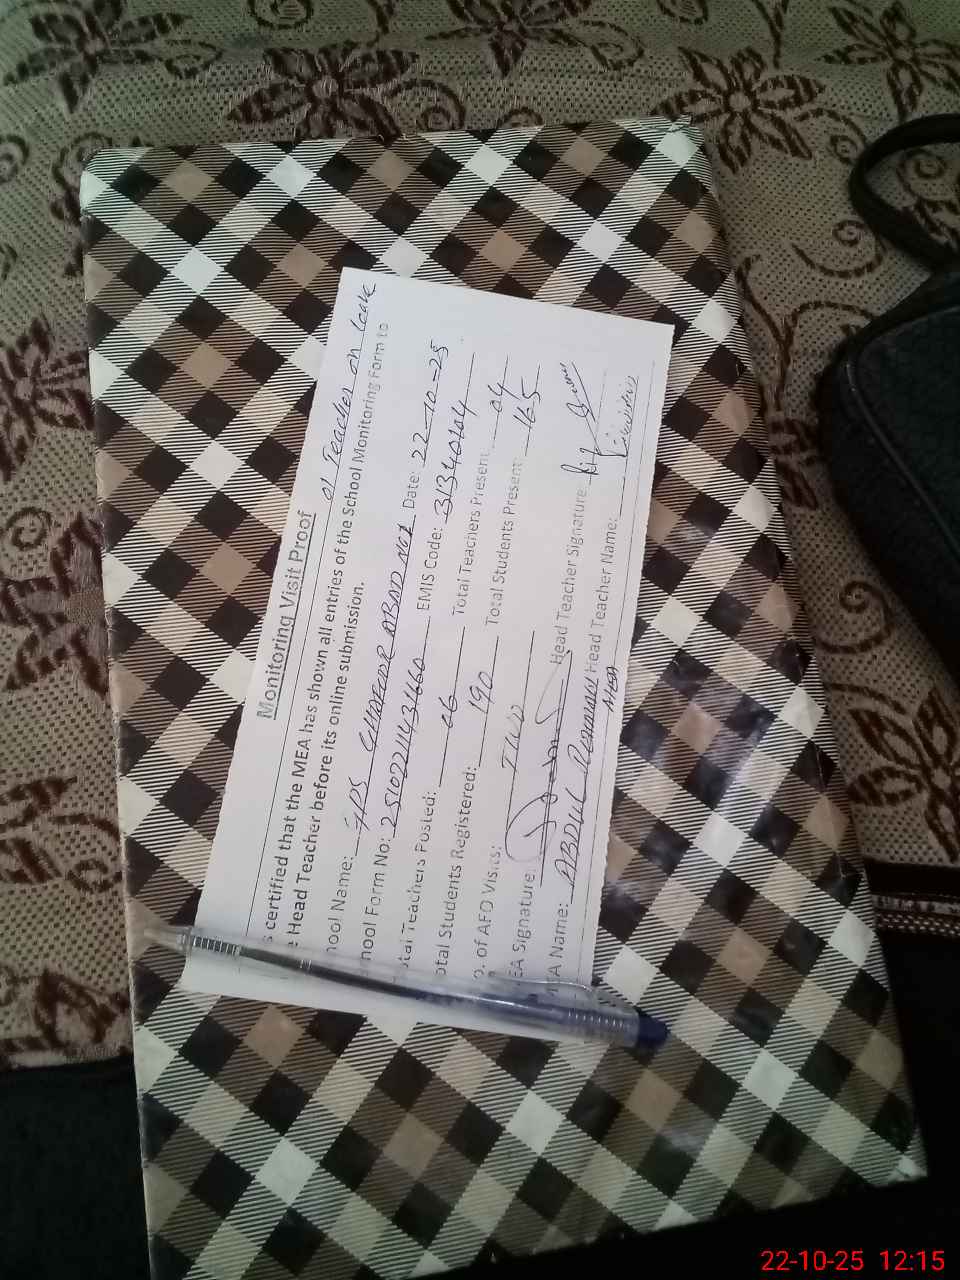 Monitoring Visit Proof
01 Teacher on leave
s certified that the MEA has shown all entries of the School Monitoring Form to
e Head Teacher before its online submission.
hool Name: GPS ABAD NO1 Date: 22-10-25
hool Form No: EMIS Code:
otal Teachers Posted: 06 Total Teachers Present 04
otal Students Registered: 190 Total Students Present: 165
o. of AEO Visits: TWO
EA Signature: Head Teacher Signature:
EA Name: ABDUL Head Teacher Name:
22-10-25 12:15